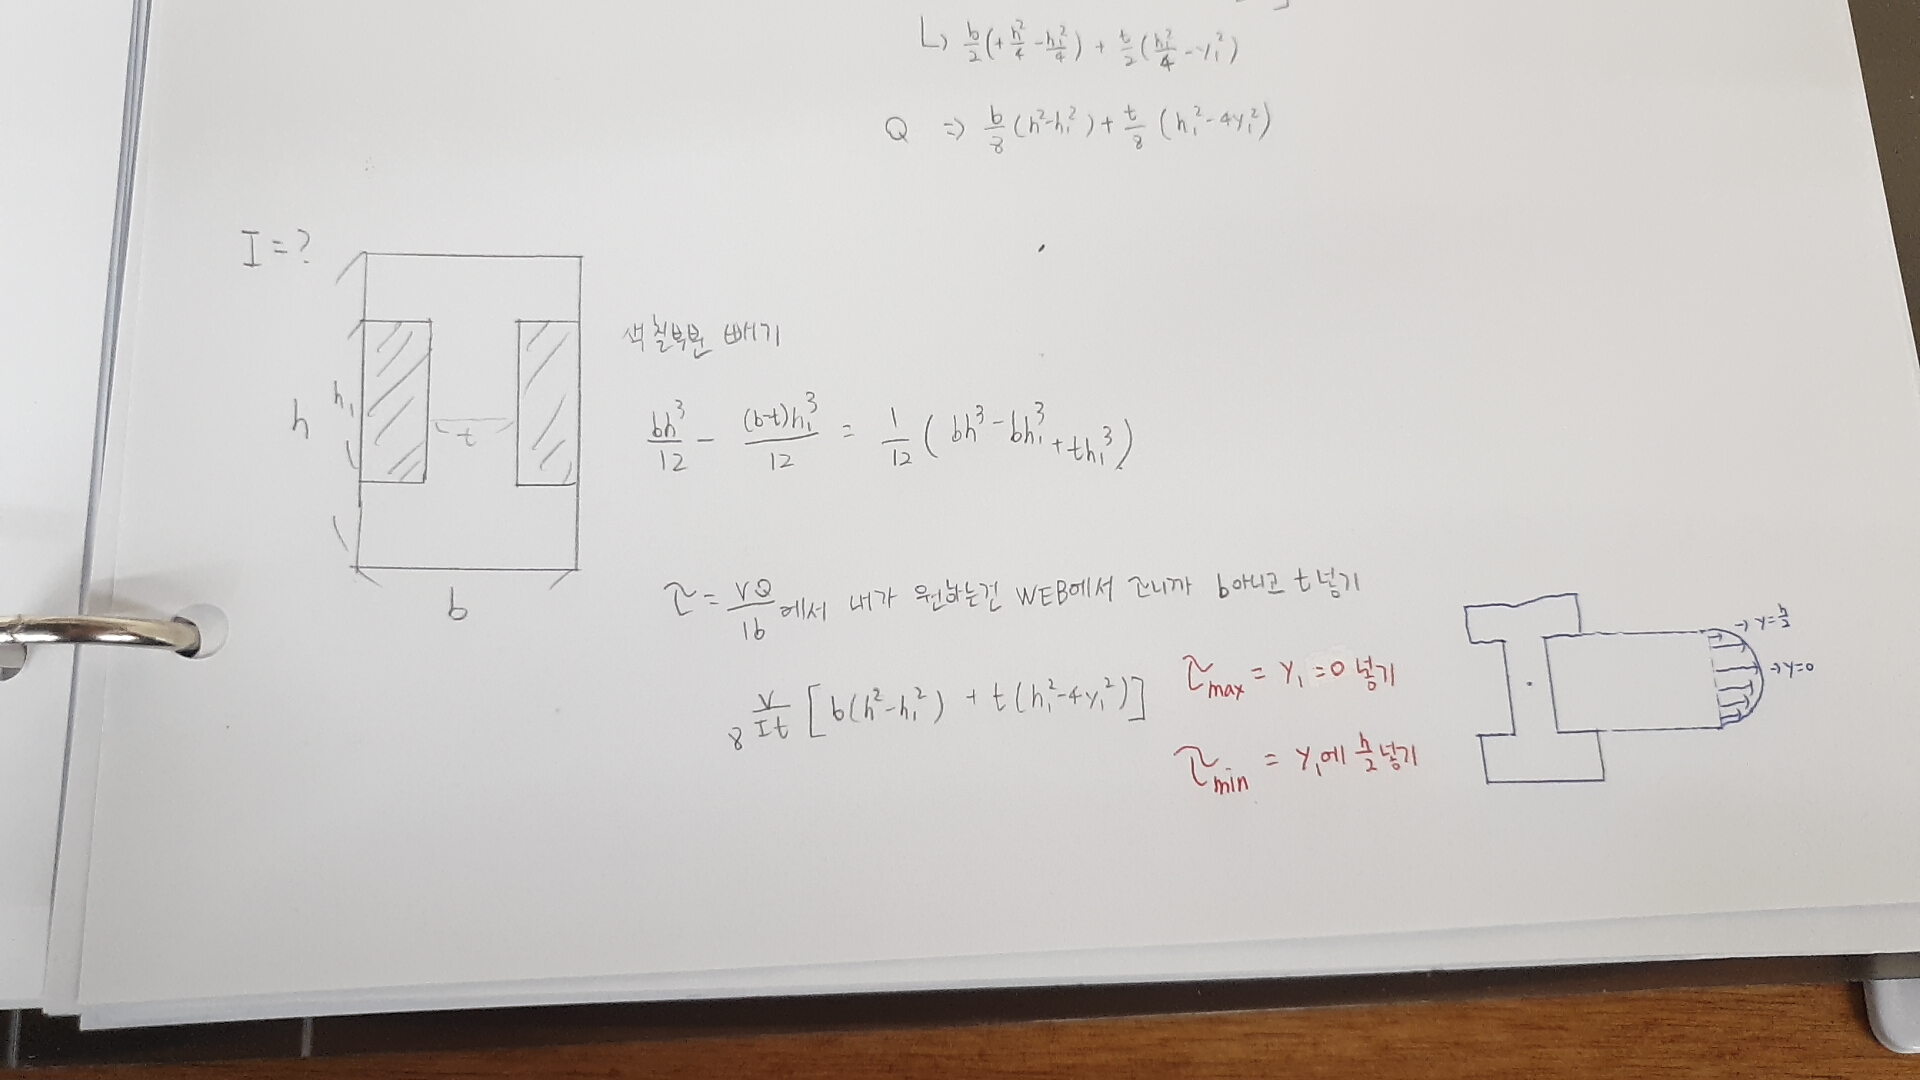 ↳ b/2(+h²/4 - h₁²/4) + t/2(h₁²/4 - y₁²)
Q ⇒ b/8(h²-h₁²) + t/8(h₁²-4y₁²)
I=?
색칠부분 빼기
h
h₁
t
b
bh³/12 - (b-t)h₁³/12 = 1/12(bh³ - bh₁³ + th₁³)
τ = VQ/Ib 에서 내가 원하는건 WEB에서 τ니까 b아니고 t넣기
V/8It [b(h²-h₁²) + t(h₁²-4y₁²)]
τmax = y₁=0 넣기
τmin = y₁에 h/2 넣기
→ y=h/2
→ y=0